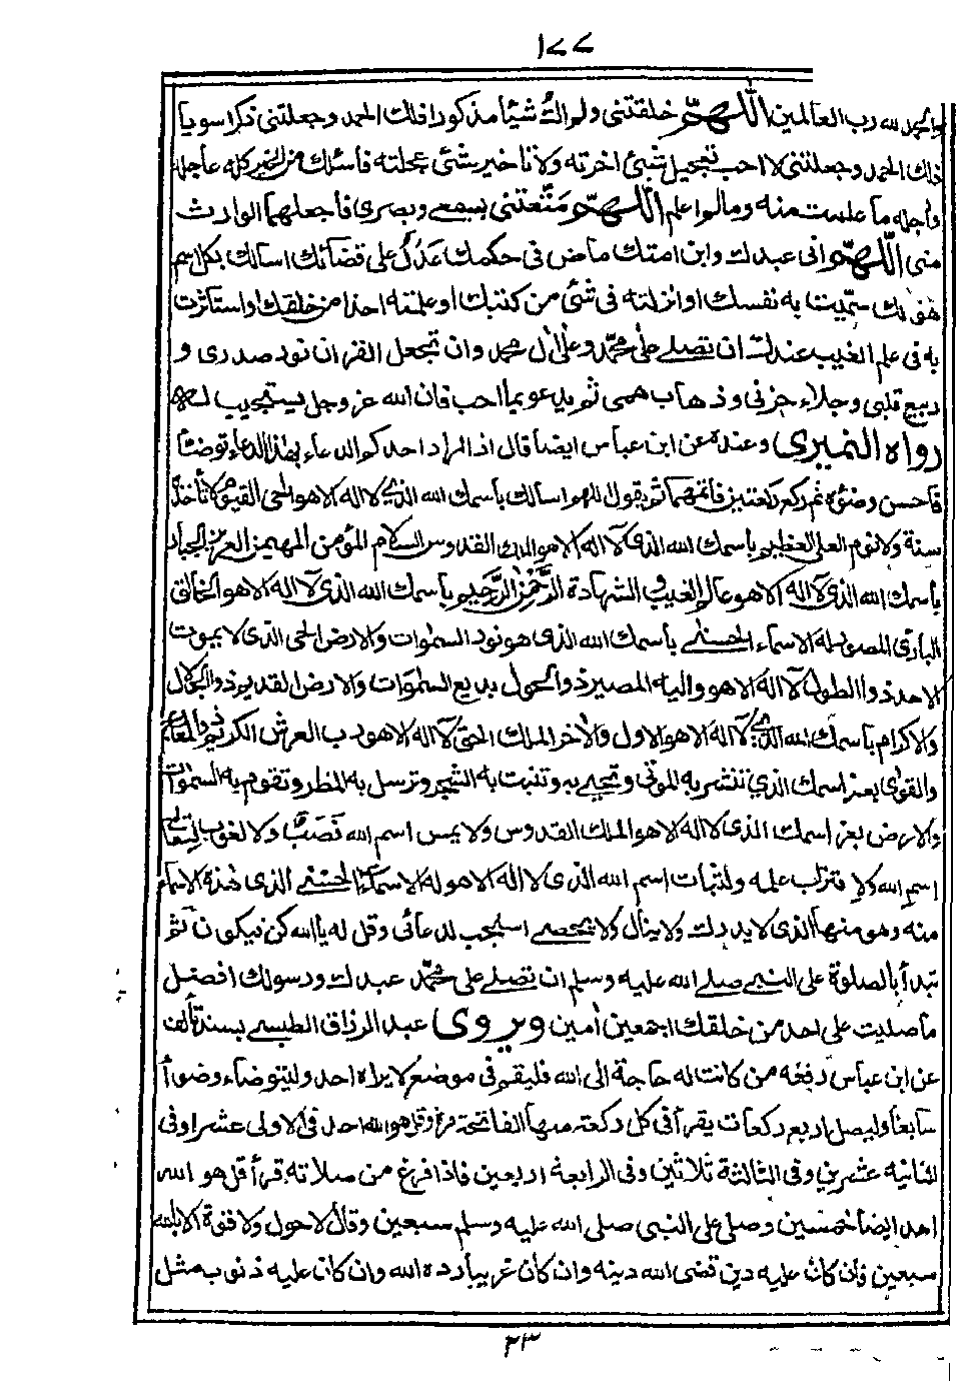 ١٧٧
والحمد لله رب العالمين اللهم خلقتني ولم اك شيأ مذكورا فلك الحمد وجعلتني ذكرا سويا
فلك الحمد وجعلتني لا احب تعجيل شئ اخرته ولا تاخير شئ عجلته فأسئلك من الخير كله عاجله
واجله ما علمت منه وما لم اعلم اللهم متعتني بسمعي وبصري فأجعلهما الوارث
مني اللهم اني عبدك وابن امتك ماض في حكمك عدل على قضآئك اسالك بكل اسم
هو لك سميت به نفسك او انزلته في شئ من كتبك او علمته احدا من خلقك او استأثرت
به في علم الغيب عندك ان تصلي على محمد وعلى ال محمد وان تجعل القران نور صدري و
ربيع قلبي وجلاء حزني وذهاب همي ثم يدعو بما احب فان الله عز وجل يستجيب له
رواه النميري وعنده عن ابن عباس ايضا قال اذا اراد احدكم الدعاء بهذا الدعاء توضأ
فأحسن وضوءه ثم ركع ركعتين فاتمهما ثم يقول اللهم اسالك بأسمك الله الذي لا اله الا هو الحي القيوم لا تأخذه
سنة ولا نوم العلي العظيم بأسمك الله الذي لا اله الا هو الملك القدوس السلام المؤمن المهيمن العزيز الجبار
بأسمك الله الذي لا اله الا هو عالم الغيب والشهادة الرحمن الرحيم بأسمك الله الذي لا اله الا هو الخالق
البارئ المصور له الاسماء الحسنى بأسمك الله الذي هو نور السموات والارض الحي الذي لا يموت
الاحد ذو الطول لا اله الا هو واليه المصير ذو الحول بديع السموات والارض القديم ذو الجلال
والاكرام بأسمك الله الذي لا اله الا هو الاول والاخر الملك الحق لا اله الا هو رب العرش الكريم ذو المعارج
والقوى بعز اسمك الذي تنشر به الموتى وتحيي به وتنبت به الشجر وترسل به المطر وتقوم به السموات
والارض بعز اسمك الذي لا اله الا هو الملك القدوس ولا يمس اسم الله نصب ولا لغوب
اسم الله ولاقتراب علمه ولثبات اسم الله الذي لا اله الا هو له الاسماء الحسنى الذي هذه الاسماء
منه وهو منها الذي لا يدرك ولا ينال ولا يحصى استجب لدعائي وقل له يا الله كن فيكون ثم
تبدأ بالصلوة على النبي صلى الله عليه وسلم ان تصلي على محمد عبدك ورسولك افضل
ما صليت على احد من خلقك اجمعين امين ويروى عبد الرزاق الطبسي بسنده
عن ابن عباس رفعه من كانت له حاجة الى الله فليقم في موضع لا يراه احد وليتوضاء وضوأ
سآبغا وليصل اربع ركعات يقرأ في كل ركعة منها الفاتحة مرة وقل هو الله احد في الاولى عشرا وفي
الثانيه عشرين وفي الثالثة ثلاثين وفي الرابعة اربعين فاذا فرغ من صلاته قرأ قل هو الله
احد ايضا خمسين وصلى على النبي صلى الله عليه وسلم سبعين وقال لا حول ولا قوة الا بالله
سبعين فان كان عليه دين قضى الله دينه وان كان غريبا رده الله وان كان عليه ذنوب مثل
٢٣